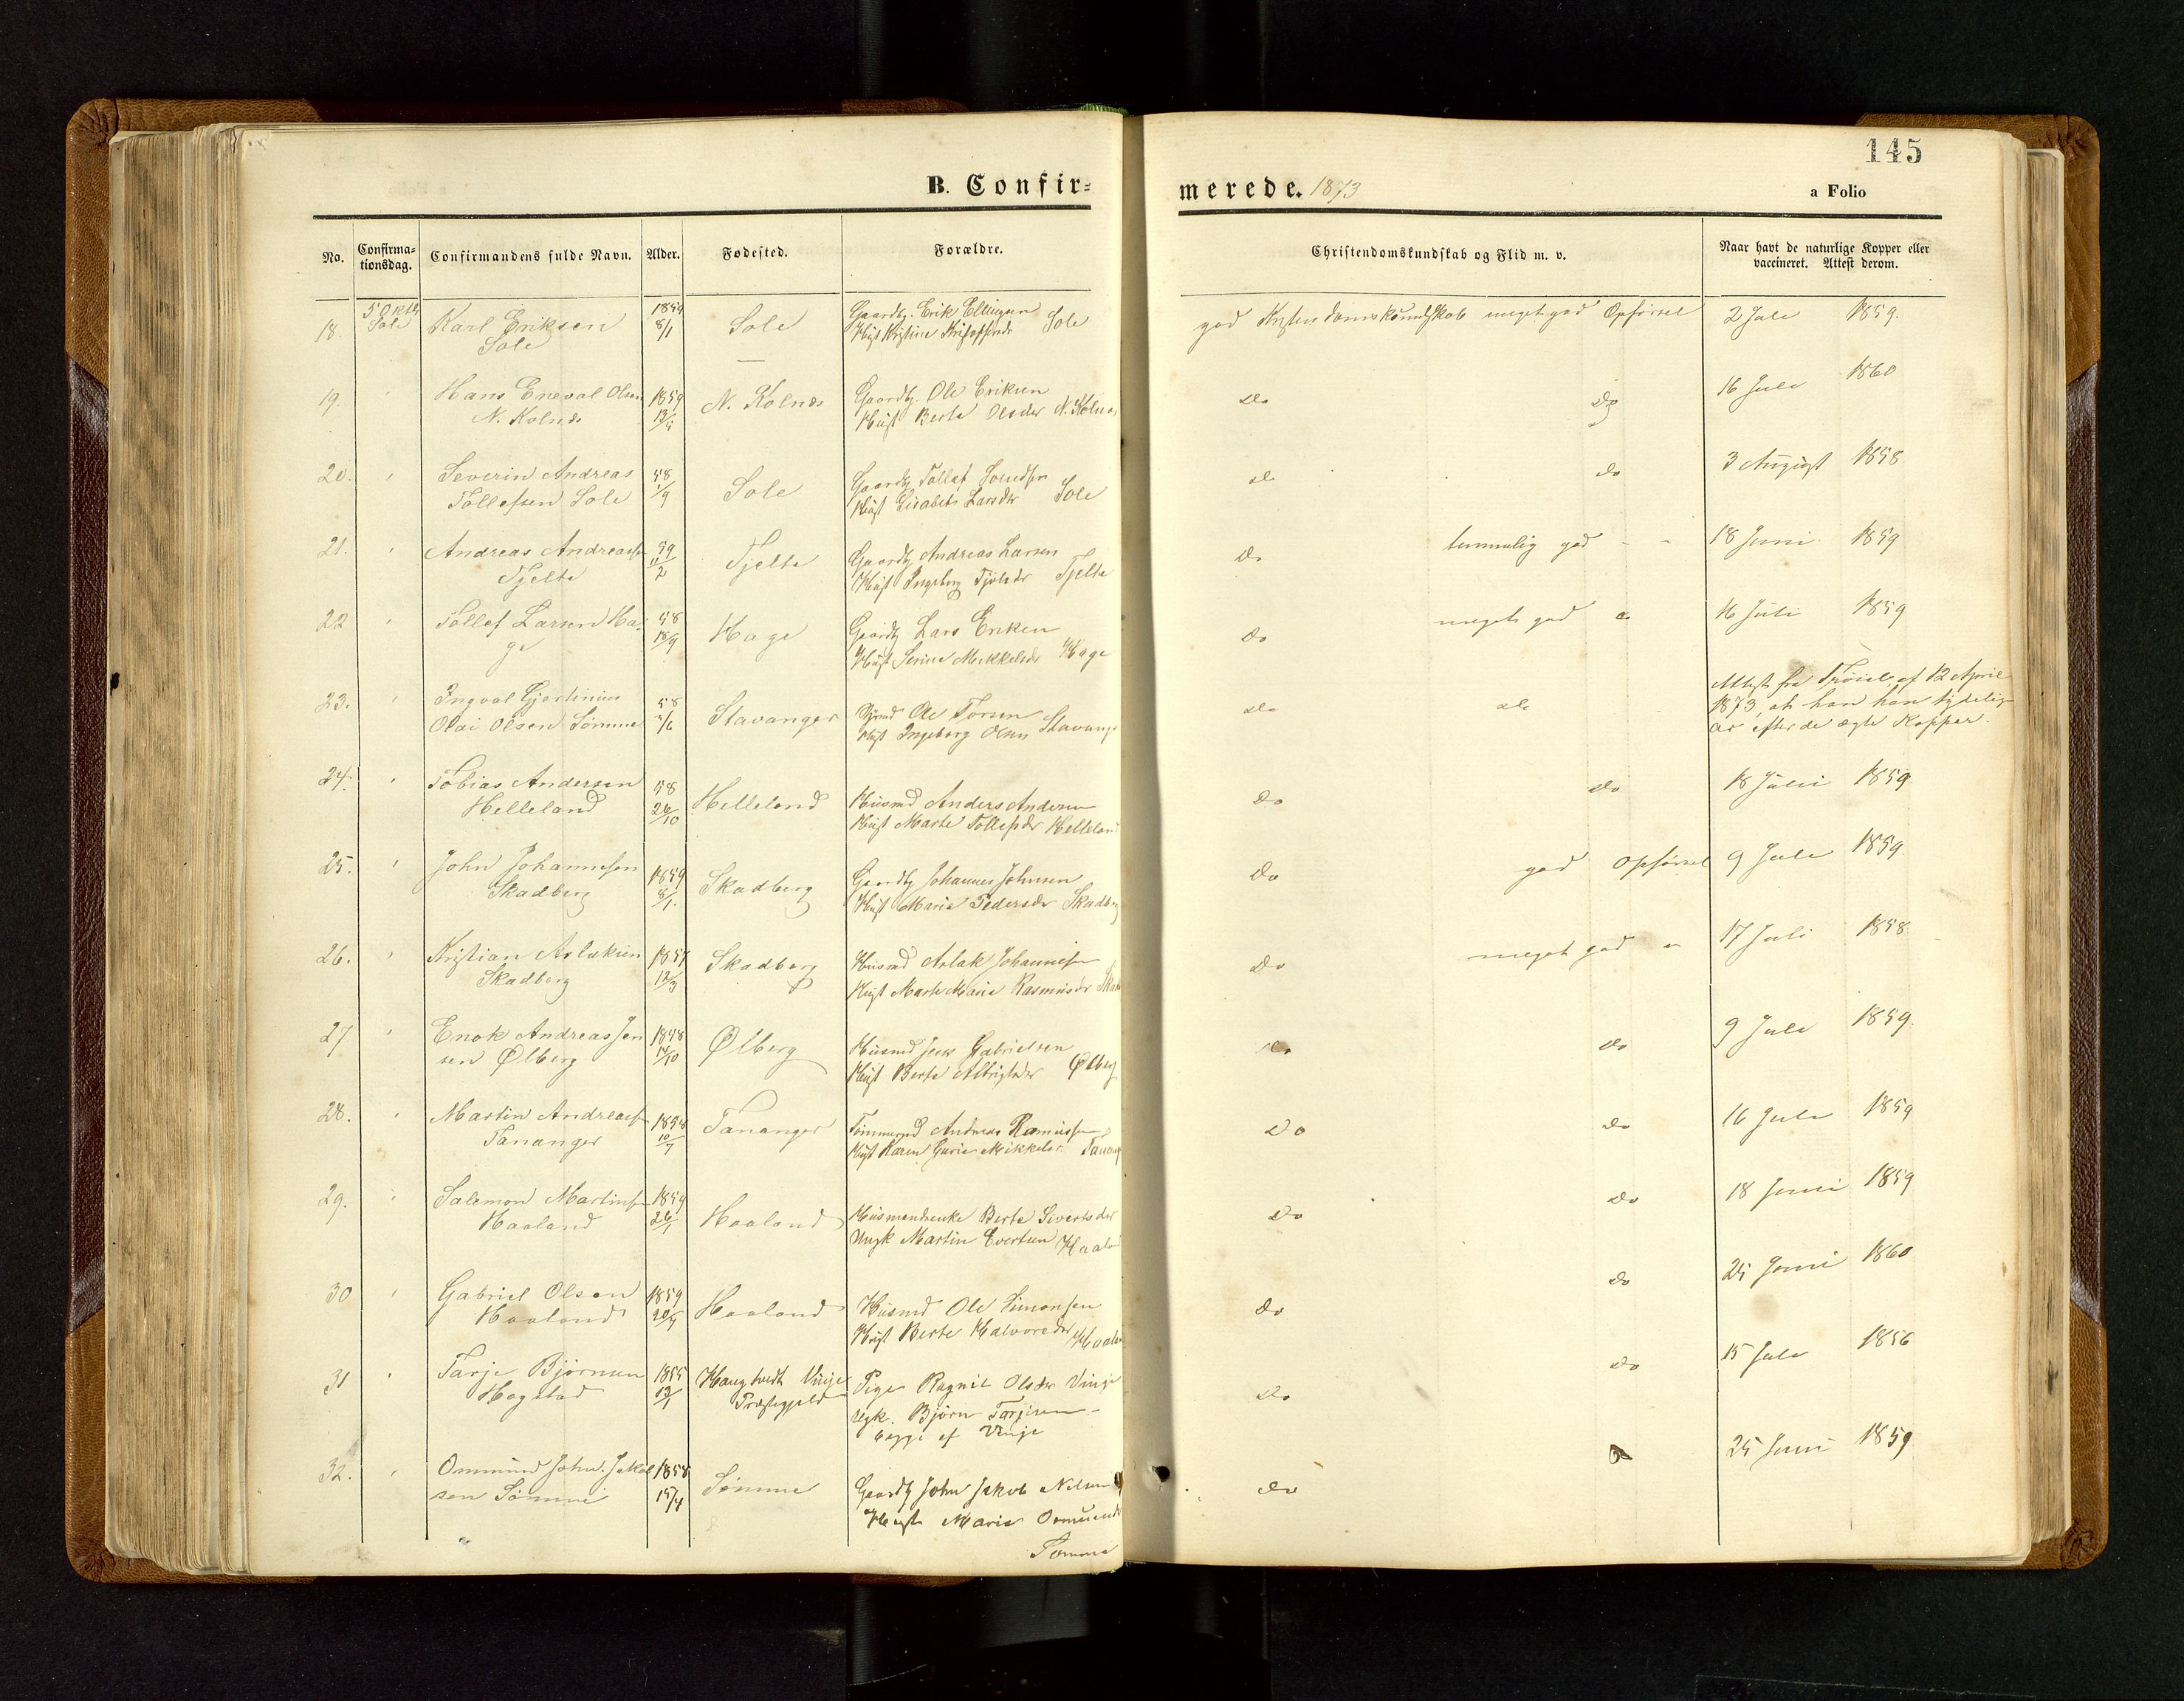 145
B. Confir=
merede. 1873
a Folio
No.
Confirma=
tionsdag.
Confirmandens fulde Navn.
Alder.
Fødested.
Forældre.
Christendomskundskab og Flid m. v.
Naar havt de naturlige Kopper eller
vaccineret. Attest derom.
18. 5 Oktb Sole
Karl Eriksen
Sole
8/1
Sole
Gaardbr. Erik Ellingsen
Hust Kristine Sole
god Kristendomskundskab meget god Opførsel
2 Juli 1859.
19. "
Hans Eneval Olsen
N. Kolnes
1859
N. Kolnes
Gaardbr. Ole Eriksen
Hust Berte Olsdr N. Kolnes
Do Do
16 Juli 1860
20. "
Severin Andreas
Tollefsen Sole
58
1/9
Sole
Gaardbr Tollef
Hust Lisabet Larsdr Sole
do do
3 August 1858
21. "
Andreas Andreass
Tjelte
59
11/2
Tjelte
Gaardbr Andreas Larsen
Hust Ingeborg Tjelte
Do temmelig god - -
18 Juni 1859
22 "
Tollef Larsen Ha=
ge
58
18/9
Hage
Gaardbr Lars Eriksen
Hust Serine Mikkelsdr Hage
Do meget god
16 Juli 1859
23. "
Ingval Gjertinius
Olai Olsen Sømme
58
Stavanger
Ole Torsen
Hust Ingeborg Olsen Stavang
do do
Attest fra af 12 April
1873, at han har tydelige
ar efter de ægte Kopper.
24. "
Tobias Andersen
Helleland
58
26/10
Helleland
Husmd Anders Andersen
Hust Marte Tollefsdr Helleland
Do Do
18 Juni 1859
25. "
John Johannesen
Skadberg
1859
8/1.
Skadberg
Gaardbr Johannes Johnsen
Hust Marie Pedersdr Skadberg
Do god Opførsel
9 Juli 1859
26. "
Kristian Aslaksen
Skadberg
Skadberg
Husmd Aslak Johannesen
Hust Marte Marie Rasmusdr
Do meget god "
17 Juli 1858
27 "
Enok Andreas Jen
sen Ølberg
14/10
Ølberg
Husmd Jens Gabrielsen
Hust Berte Ølberg
Do Do
9 Juli 1859
28. "
Martin Andreass
Tananger
1858
10/7
Tananger
Tømmermd Andreas Rasmussen
Hust Karen Mikkels Tanang
Do Do
16 Juli 1859
29. "
Salemon Martins
Haaland
1859
26/1
Haaland
Husmandsenke Berte Sivertsdr
Ungk Martin Evertsen Haal
Do Do
18 Juni 1859
30 "
Gabriel Olsen
Haaland
1859
Haaland
Husmd Ole Simonsen
Hust Berte Halvorsdr Haal
Do Do
25 Juni 1860
31 "
Tarje Bjørnsen
Hogstad
1855
12/1
Vinje
Præstegjeld
Pige Ragnil Olsdr Vinje
Ugk. Bjørn Tarjesen
begge af Vinje
Do Do
15 Juli 1856
32. "
Ommund John Jakob
sen Sømme
1858
Sømme
Gaardbr John Jakob Nilsen
Hust Marie
Sømme
do
25 Juni 1859